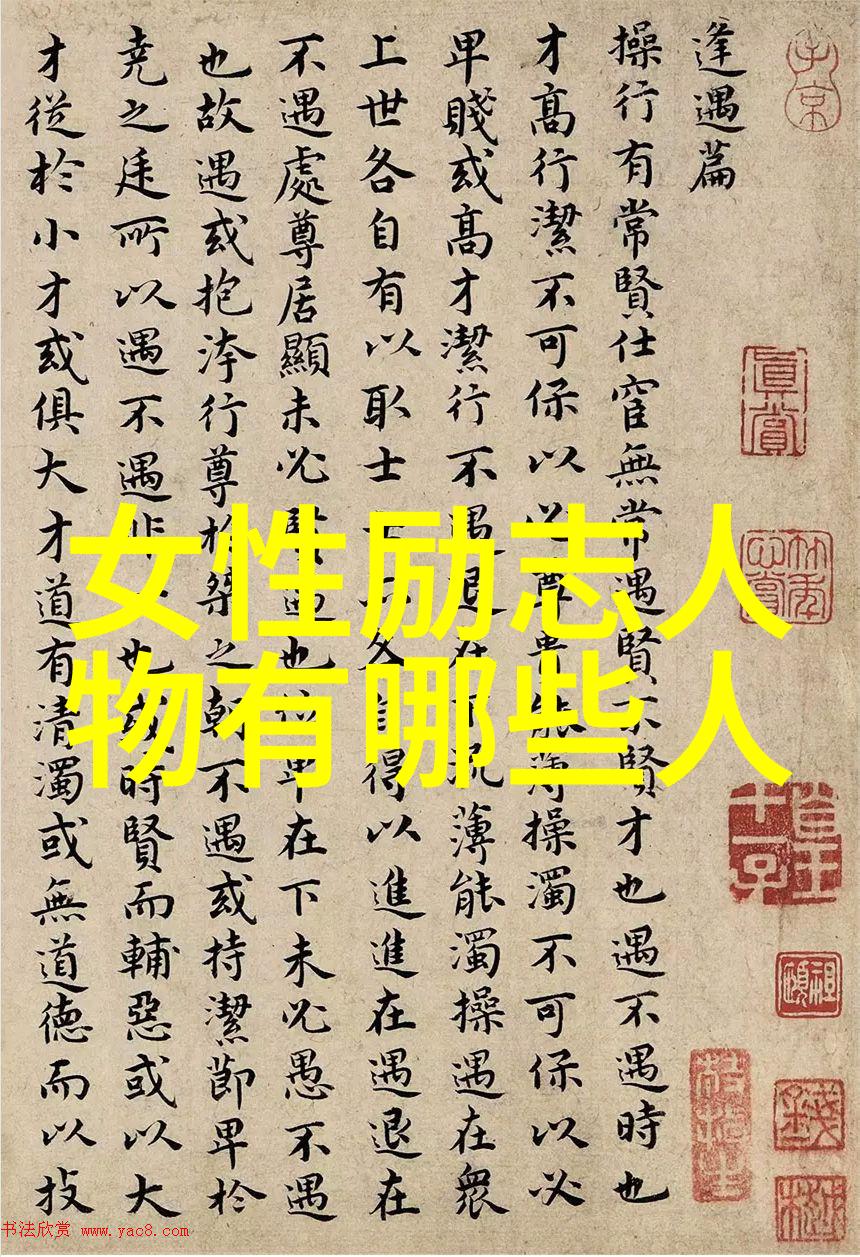 逢遇篇
操行有常賢仕宦無常遇賢不賢才也遇不遇時也
才高行潔不可保以必尊貴能薄操濁不可保以必
卑賤或高才潔行不遇退在下流薄能濁操遇在衆
上世各自有以取士士亦各自得以進進在遇退在
不遇處尊居顯未必賢遇也位卑在下未必愚不遇
也故遇或抱洿行尊於桀之朝不遇或持潔節卑於
堯之廷所以遇不遇非一也或時賢而輔惡或以大
才從於小才或俱大才道有清濁或無道德而以技
女性励志人
物有哪些人
真賞
书法欣赏 www.yac8.com